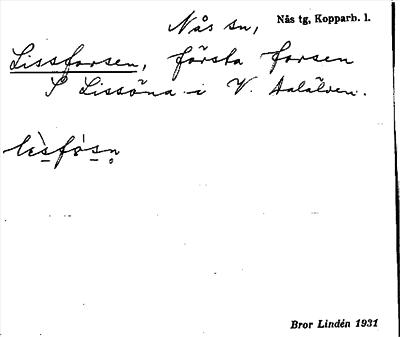 Nås sn, Nås tg, Kopparb. l.
Lissforsen, första forsen
S Lissöna i V. Dalälven.
Bror Lindén 1931